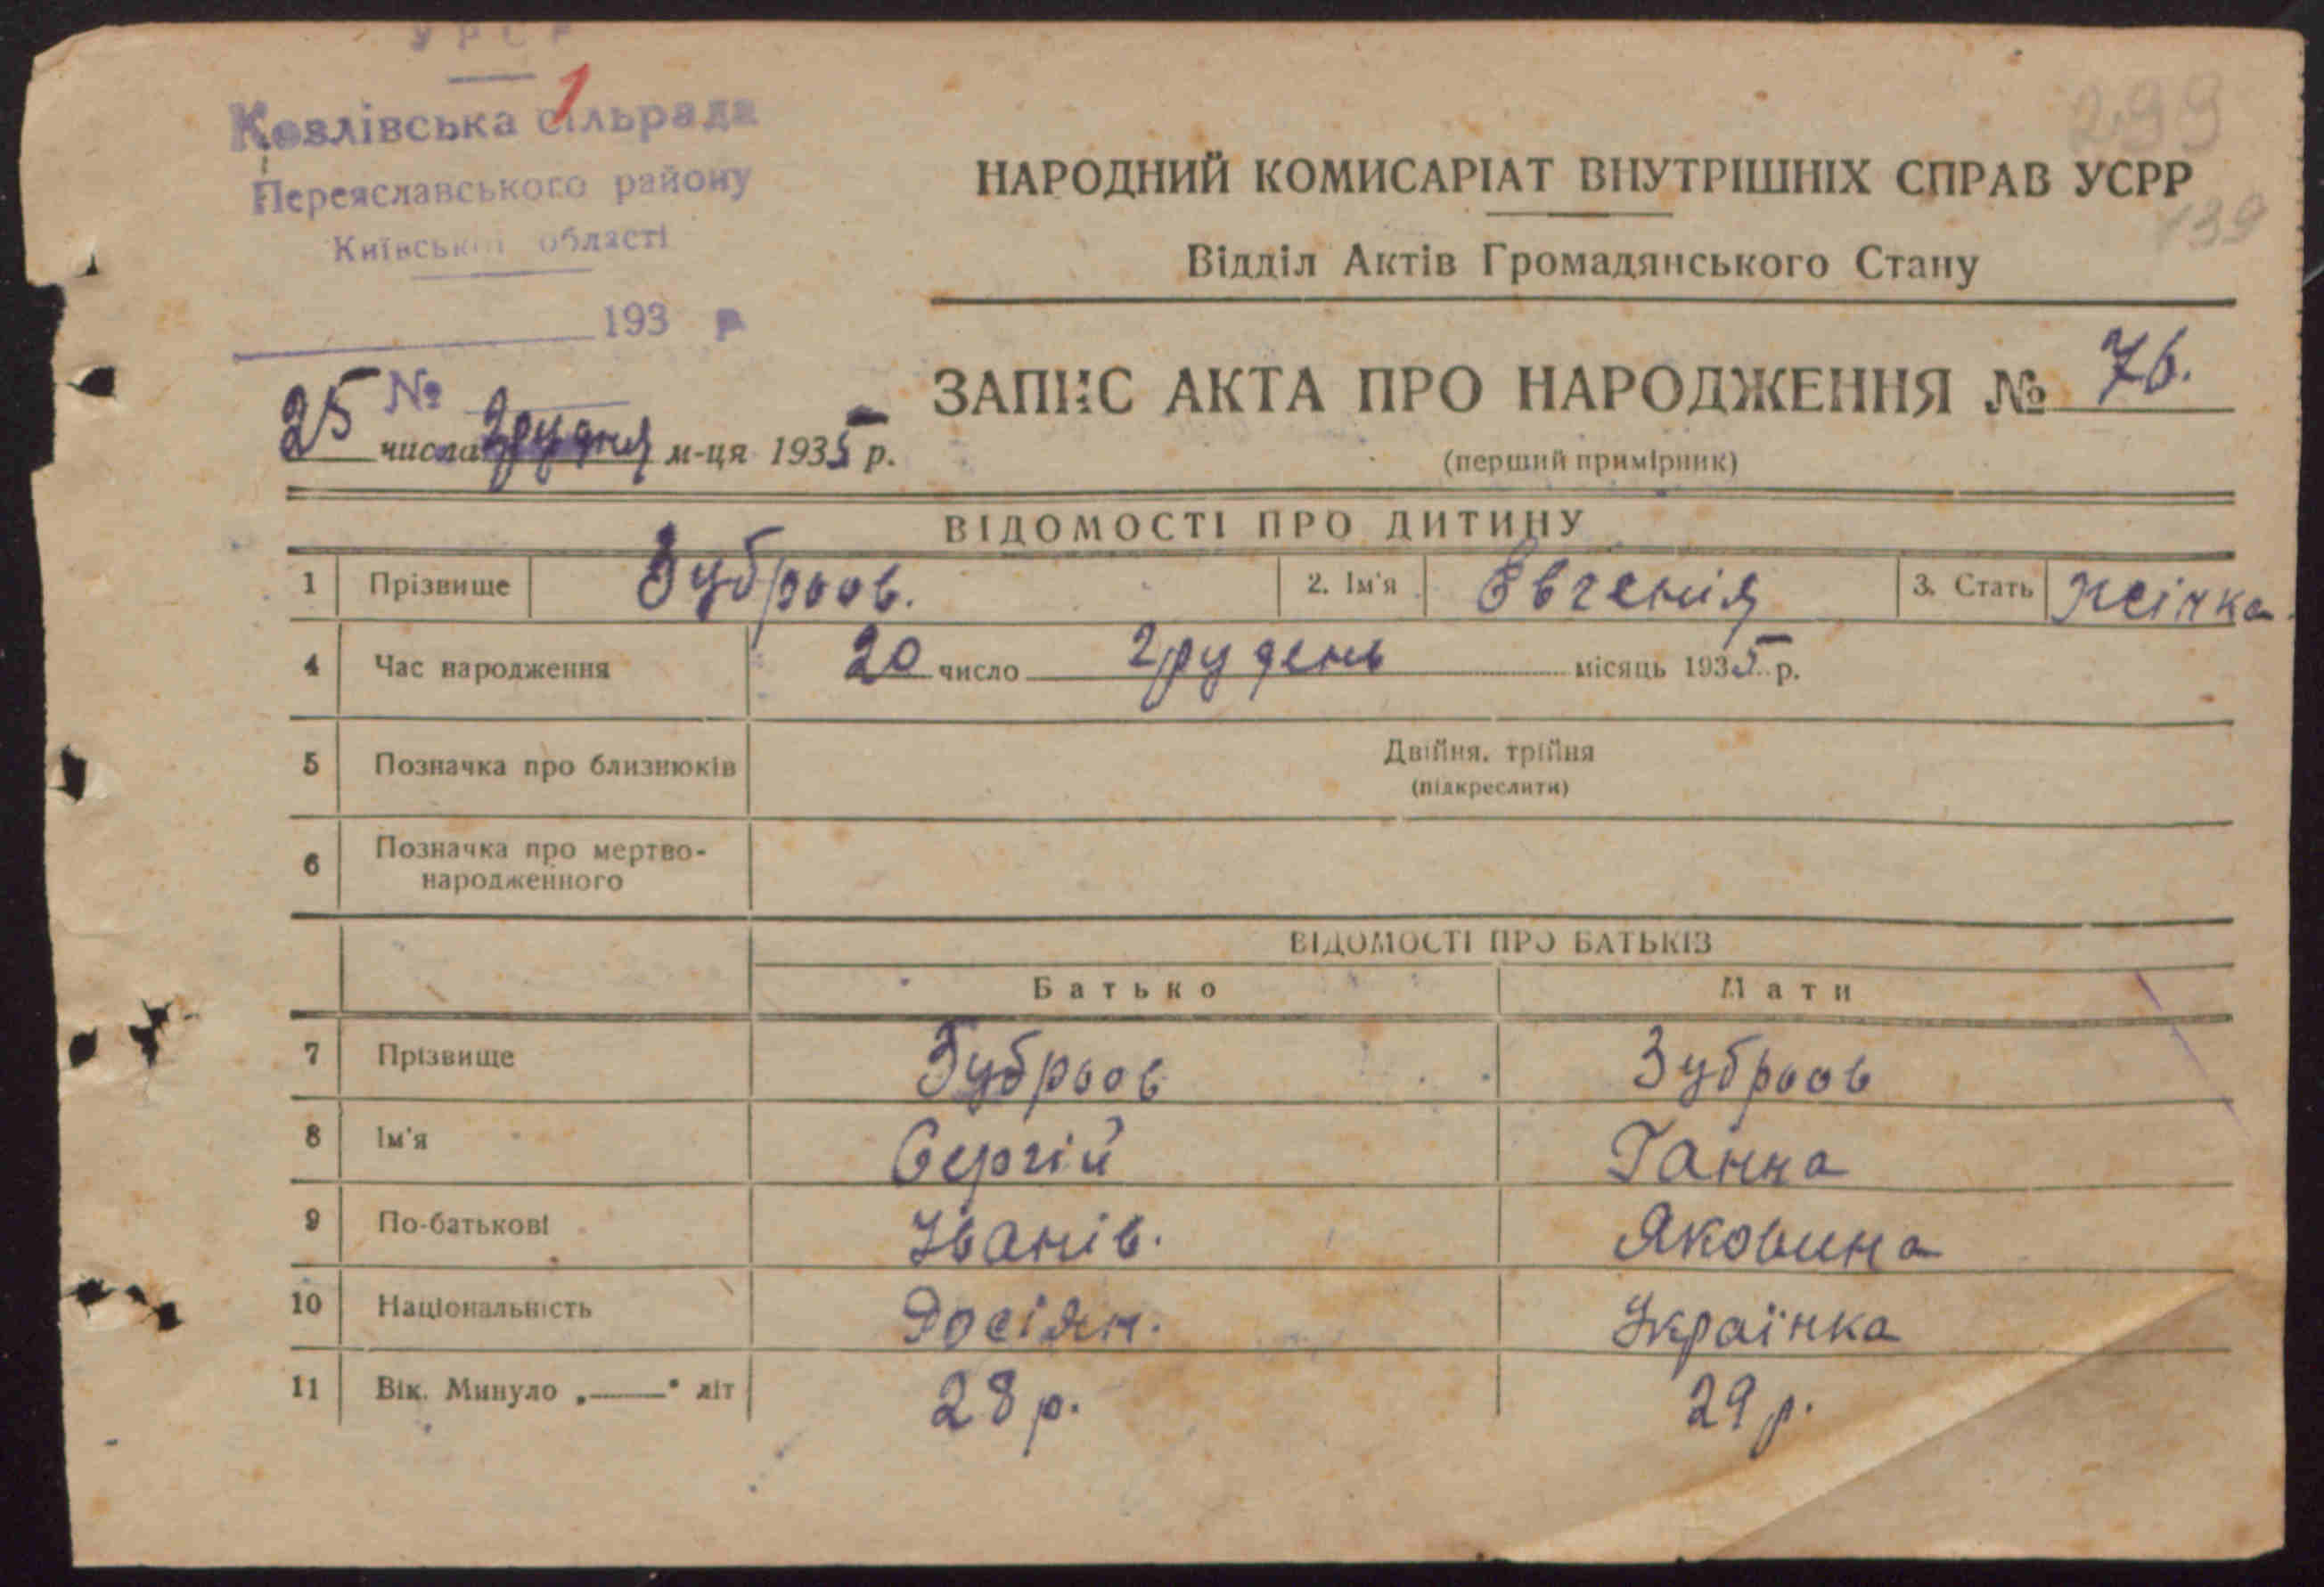 УРСР
1
Козлівська сільрада
Переяславського району
Київської області
193 р
№
299
139
НАРОДНИЙ КОМИСАРІАТ ВНУТРІШНІХ СПРАВ УСРР
Відділ Актів Громадянського Стану
ЗАПИС АКТА ПРО НАРОДЖЕННЯ № 76.
(перший примірник)
25 числа грудня м-ця 1935 р.
ВІДОМОСТІ ПРО ДИТИНУ
1 Прізвище Зубрьов. 2. Ім'я Євгенія 3. Стать Жінка
4 Час народження 20 число грудень місяць 1935 р.
5 Позначка про близнюків Двійня, трійня
(підкреслити)
6 Позначка про мертво-
народженного
ВІДОМОСТІ ПРО БАТЬКІВ
Батько Мати
7 Прізвище Зубрьов Зубрьов
8 Ім'я Сергій Ганна
9 По-батькові Іванів. Яковина
10 Національність Росіян. Українка
11 Вік. Минуло „——" літ 28 р. 29 р.